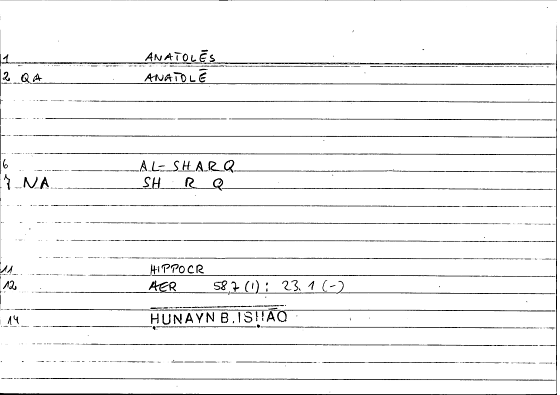 1 ANATOLĒS
2 QA ANATOLĒ
6 AL-SHARQ
7 NA SH R Q
11 HIPPOCR
12 AER 58,7 (1) : 23.1 (-)
14 ḤUNAYN B. ISḤĀQ